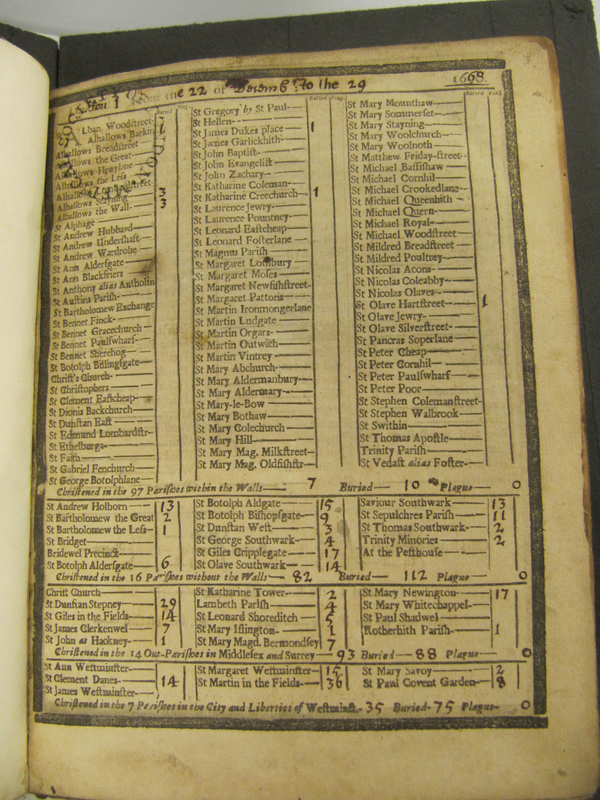 from the 22 of Decemb. to the 29 1698.
Buried Plag.
Alban Woodstreet
Alhallows Barkin
Alhallows Breadstreet
Alhallows the Great
Alhallows Honylane
Alhallows the Less
Alhallows Lumbardstreet 3
Alhallows Stayning 3
Alhallows the Wall
St Alphage
St Andrew Hubbard
St Andrew Undershaft
St Andrew Wardrobe
St Ann Aldersgate
St Ann Blackfriers
St Anthony alias Antholin
St Austins Parish
St Bartholomew Exchange
St Bennet Finck
St Bennet Gracechurch
St Bennet Paulswharf
St Bennet Sherehog
St Botolph Billingsgate
Christ's Church
St Christophers
St Clement Eastcheap
St Dionis Backchurch
St Dunstan East
St Edmund Lombardstr
St Ethelburga
St Faith
St Gabriel Fenchurch
St George Botolphlane
St Gregory by St Paul
St Hellen 1
St James Dukes place
St James Garlickhith
St John Baptist
St John Evangelist
St John Zachary
St Katharine Coleman
St Katharine Creechurch 1
St Laurence Jewry
St Laurence Pountney
St Leonard Eastcheap
St Leonard Fosterlane
St Magnus Parish
St Margaret Lothbury
St Margaret Moses
St Margaret Newfishstreet
St Margaret Pattons
St Martin Ironmongerlane
St Martin Ludgate
St Martin Orgars
St Martin Outwich
St Martin Vintrey
St Mary Abchurch
St Mary Aldermanbury
St Mary Aldermary
St Mary-le-Bow
St Mary Bothaw
St Mary Colechurch
St Mary Hill
St Mary Mag. Milkstreet
St Mary Mag. Oldfishstr
St Mary Mounthaw
St Mary Sommerset
St Mary Stayning
St Mary Woolchurch
St Mary Woolnoth
St Matthew Friday-street
St Michael Bassishaw
St Michael Cornhil
St Michael Crookedlane
St Michael Queenhith
St Michael Quern
St Michael Royal
St Michael Woodstreet
St Mildred Breadstreet
St Mildred Poultney
St Nicolas Acons
St Nicolas Coleabby
St Nicolas Olaves
St Olave Hartstreet 1
St Olave Jewry
St Olave Silverstreet
St Pancras Soperlane
St Peter Cheap
St Peter Cornhil
St Peter Paulswharf
St Peter Poor
St Stephen Colemanstreet
St Stephen Walbrook
St Swithin
St Thomas Apostle
Trinity Parish
St Vedast alias Foster
Christened in the 97 Parishes within the Walls 7 Buried 10 Plague 0
St Andrew Holborn 13
St Bartholomew the Great 2
St Bartholomew the Less 1
St Bridget
Bridewel Precinct
St Botolph Aldersgate 6
St Botolph Aldgate 15
St Botolph Bishopsgate 9
St Dunstan West 3
St George Southwark 4
St Giles Cripplegate 17
St Olave Southwark 14
Saviour Southwark 13
St Sepulchres Parish 11
St Thomas Southwark 2
Trinity Minories 2
At the Pesthouse
Christened in the 16 Parishes without the Walls 82 Buried 112 Plague 0
Christ Church
St Dunstan Stepney 29
St Giles in the Fields 14
St James Clerkenwel 7
St John at Hackney 1
St Katharine Tower 2
Lambeth Parish 4
St Leonard Shoreditch 5
St Mary Islington 1
St Mary Magd. Bermondsey 7
St Mary Newington 17
St Mary Whitechappel
St Paul Shadwel
Rotherhith Parish 1
Christened in the 14 Out-Parishes in Middlesex and Surrey 93 Buried 88 Plague 0
St Ann Westminster
St Clement Danes 14
St James Westminster
St Margaret Westminster 15
St Martin in the Fields 36
St Mary Savoy 2
St Paul Covent Garden 8
Christened in the 7 Parishes in the City and Liberties of Westminst. 35 Buried 75 Plague 0